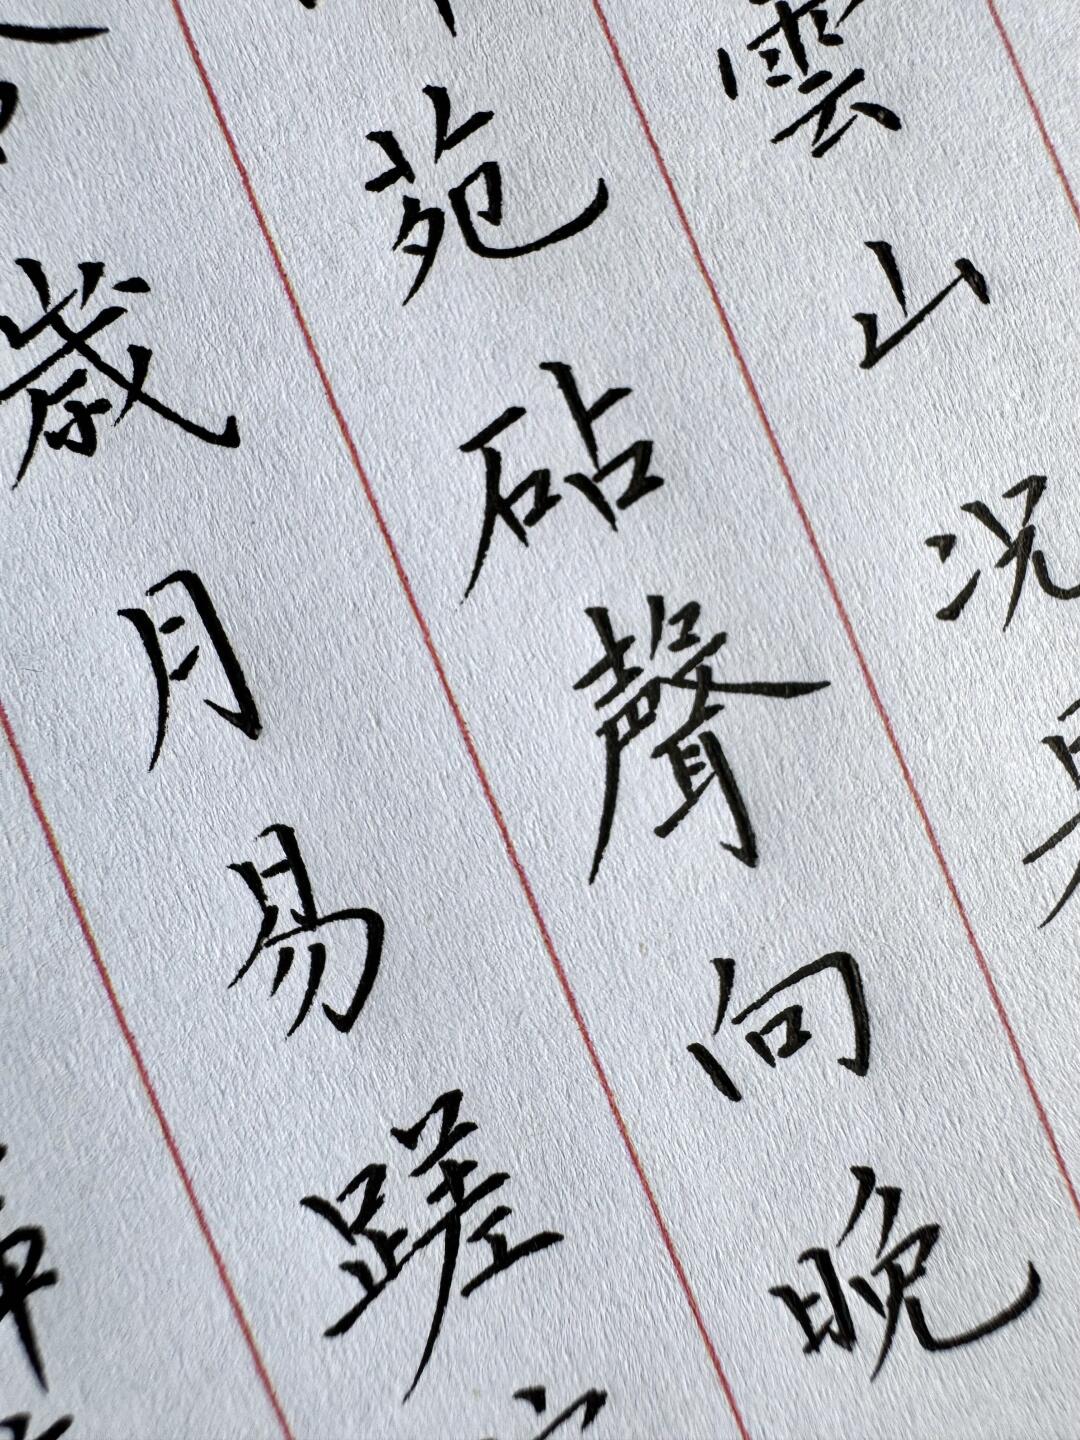 雲山況
苑砧聲向晚
歲月易蹉